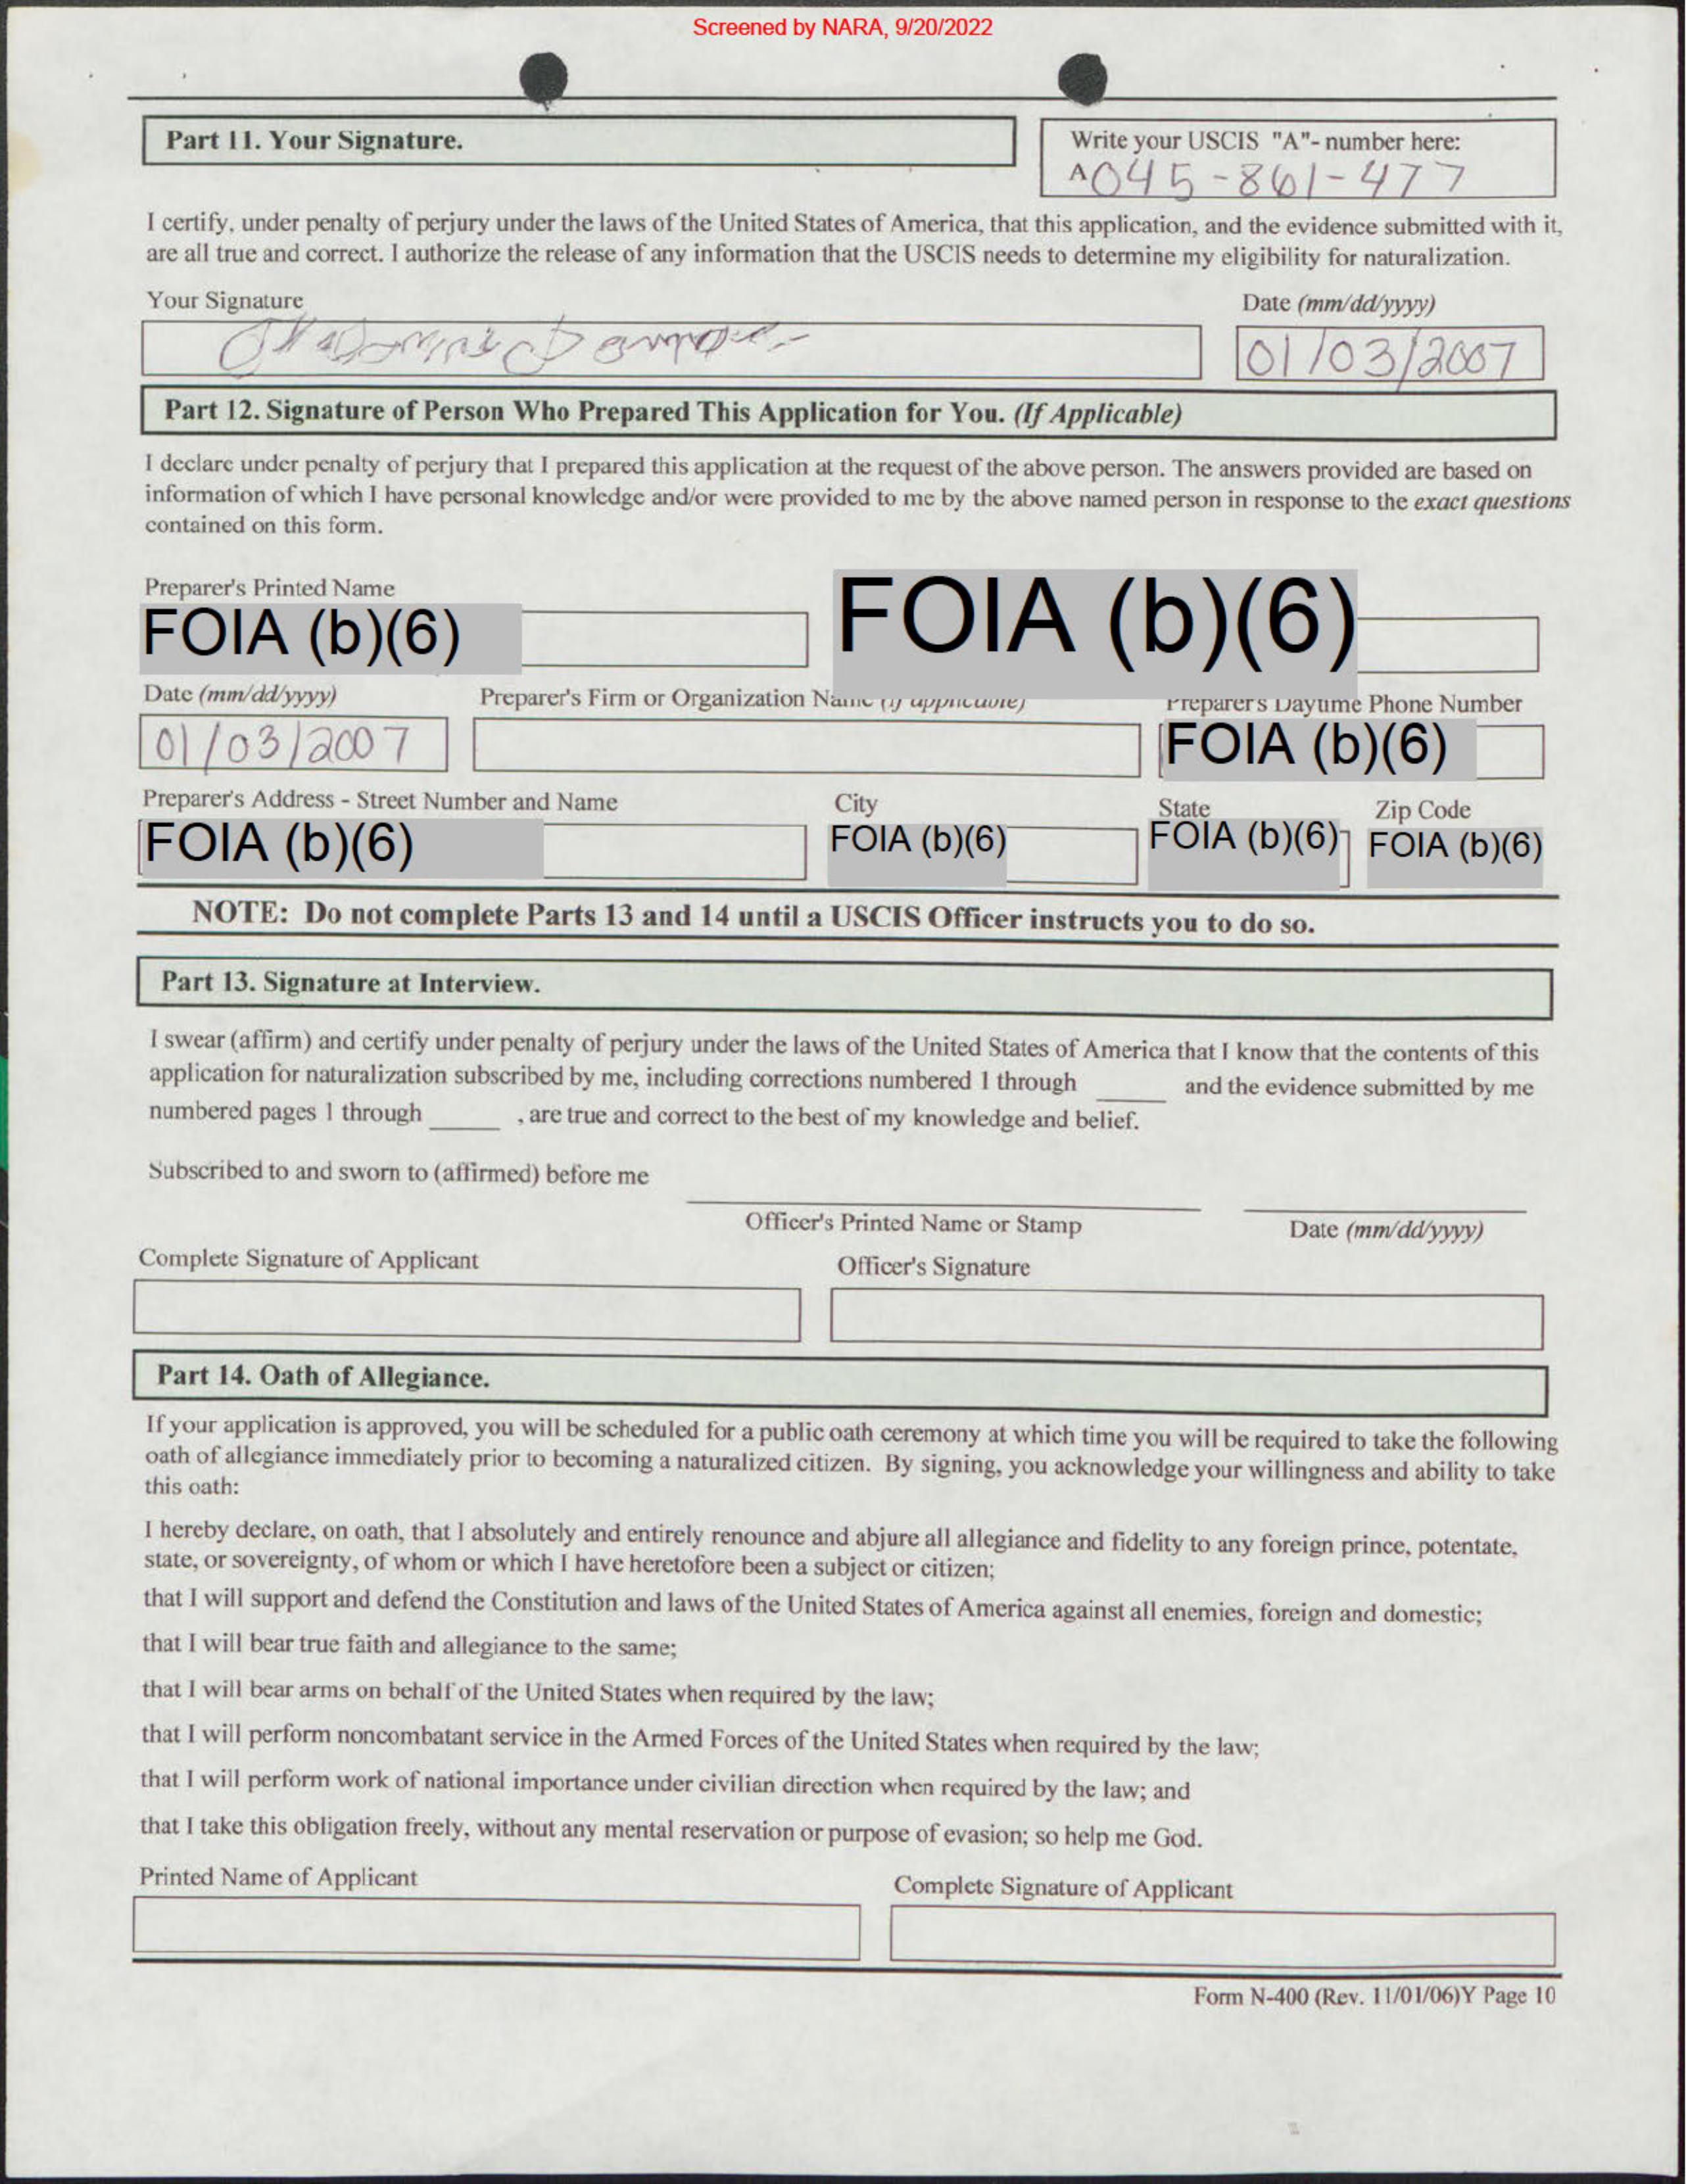 Screened by NARA, 9/20/2022
Part 11. Your Signature.
Write your USCIS "A"- number here:
A 045-861-477
I certify, under penalty of perjury under the laws of the United States of America, that this application, and the evidence submitted with it,
are all true and correct. I authorize the release of any information that the USCIS needs to determine my eligibility for naturalization.
Your Signature
Date (mm/dd/yyyy)
01/03/2007
Part 12. Signature of Person Who Prepared This Application for You. (If Applicable)
I declare under penalty of perjury that I prepared this application at the request of the above person. The answers provided are based on
information of which I have personal knowledge and/or were provided to me by the above named person in response to the exact questions
contained on this form.
Preparer's Printed Name
FOIA (b)(6)
FOIA (b)(6)
Date (mm/dd/yyyy)
Preparer's Firm or Organization Name (if applicable)
Preparer's Daytime Phone Number
01/03/2007
FOIA (b)(6)
Preparer's Address - Street Number and Name
City
State
Zip Code
FOIA (b)(6)
FOIA (b)(6)
FOIA (b)(6)
FOIA (b)(6)
NOTE: Do not complete Parts 13 and 14 until a USCIS Officer instructs you to do so.
Part 13. Signature at Interview.
I swear (affirm) and certify under penalty of perjury under the laws of the United States of America that I know that the contents of this
application for naturalization subscribed by me, including corrections numbered 1 through _____ and the evidence submitted by me
numbered pages 1 through _____ , are true and correct to the best of my knowledge and belief.
Subscribed to and sworn to (affirmed) before me
Officer's Printed Name or Stamp
Date (mm/dd/yyyy)
Complete Signature of Applicant
Officer's Signature
Part 14. Oath of Allegiance.
If your application is approved, you will be scheduled for a public oath ceremony at which time you will be required to take the following
oath of allegiance immediately prior to becoming a naturalized citizen. By signing, you acknowledge your willingness and ability to take
this oath:
I hereby declare, on oath, that I absolutely and entirely renounce and abjure all allegiance and fidelity to any foreign prince, potentate,
state, or sovereignty, of whom or which I have heretofore been a subject or citizen;
that I will support and defend the Constitution and laws of the United States of America against all enemies, foreign and domestic;
that I will bear true faith and allegiance to the same;
that I will bear arms on behalf of the United States when required by the law;
that I will perform noncombatant service in the Armed Forces of the United States when required by the law;
that I will perform work of national importance under civilian direction when required by the law; and
that I take this obligation freely, without any mental reservation or purpose of evasion; so help me God.
Printed Name of Applicant
Complete Signature of Applicant
Form N-400 (Rev. 11/01/06)Y Page 10